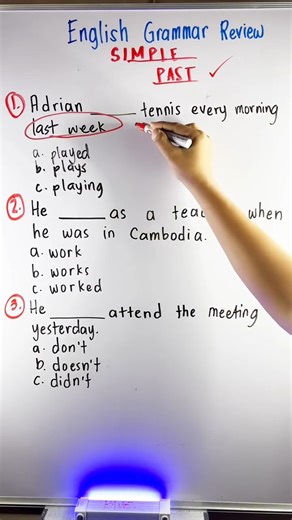 English Grammar Review
SIMPLE
PAST ✓
1. Adrian ______ tennis every morning
last week
a. played
b. plays
c. playing
2. He ______ as a when
he was in Cambodia.
a. work
b. works
c. worked
3. He ______ attend the meeting
yesterday.
a. don't
b. doesn't
c. didn't